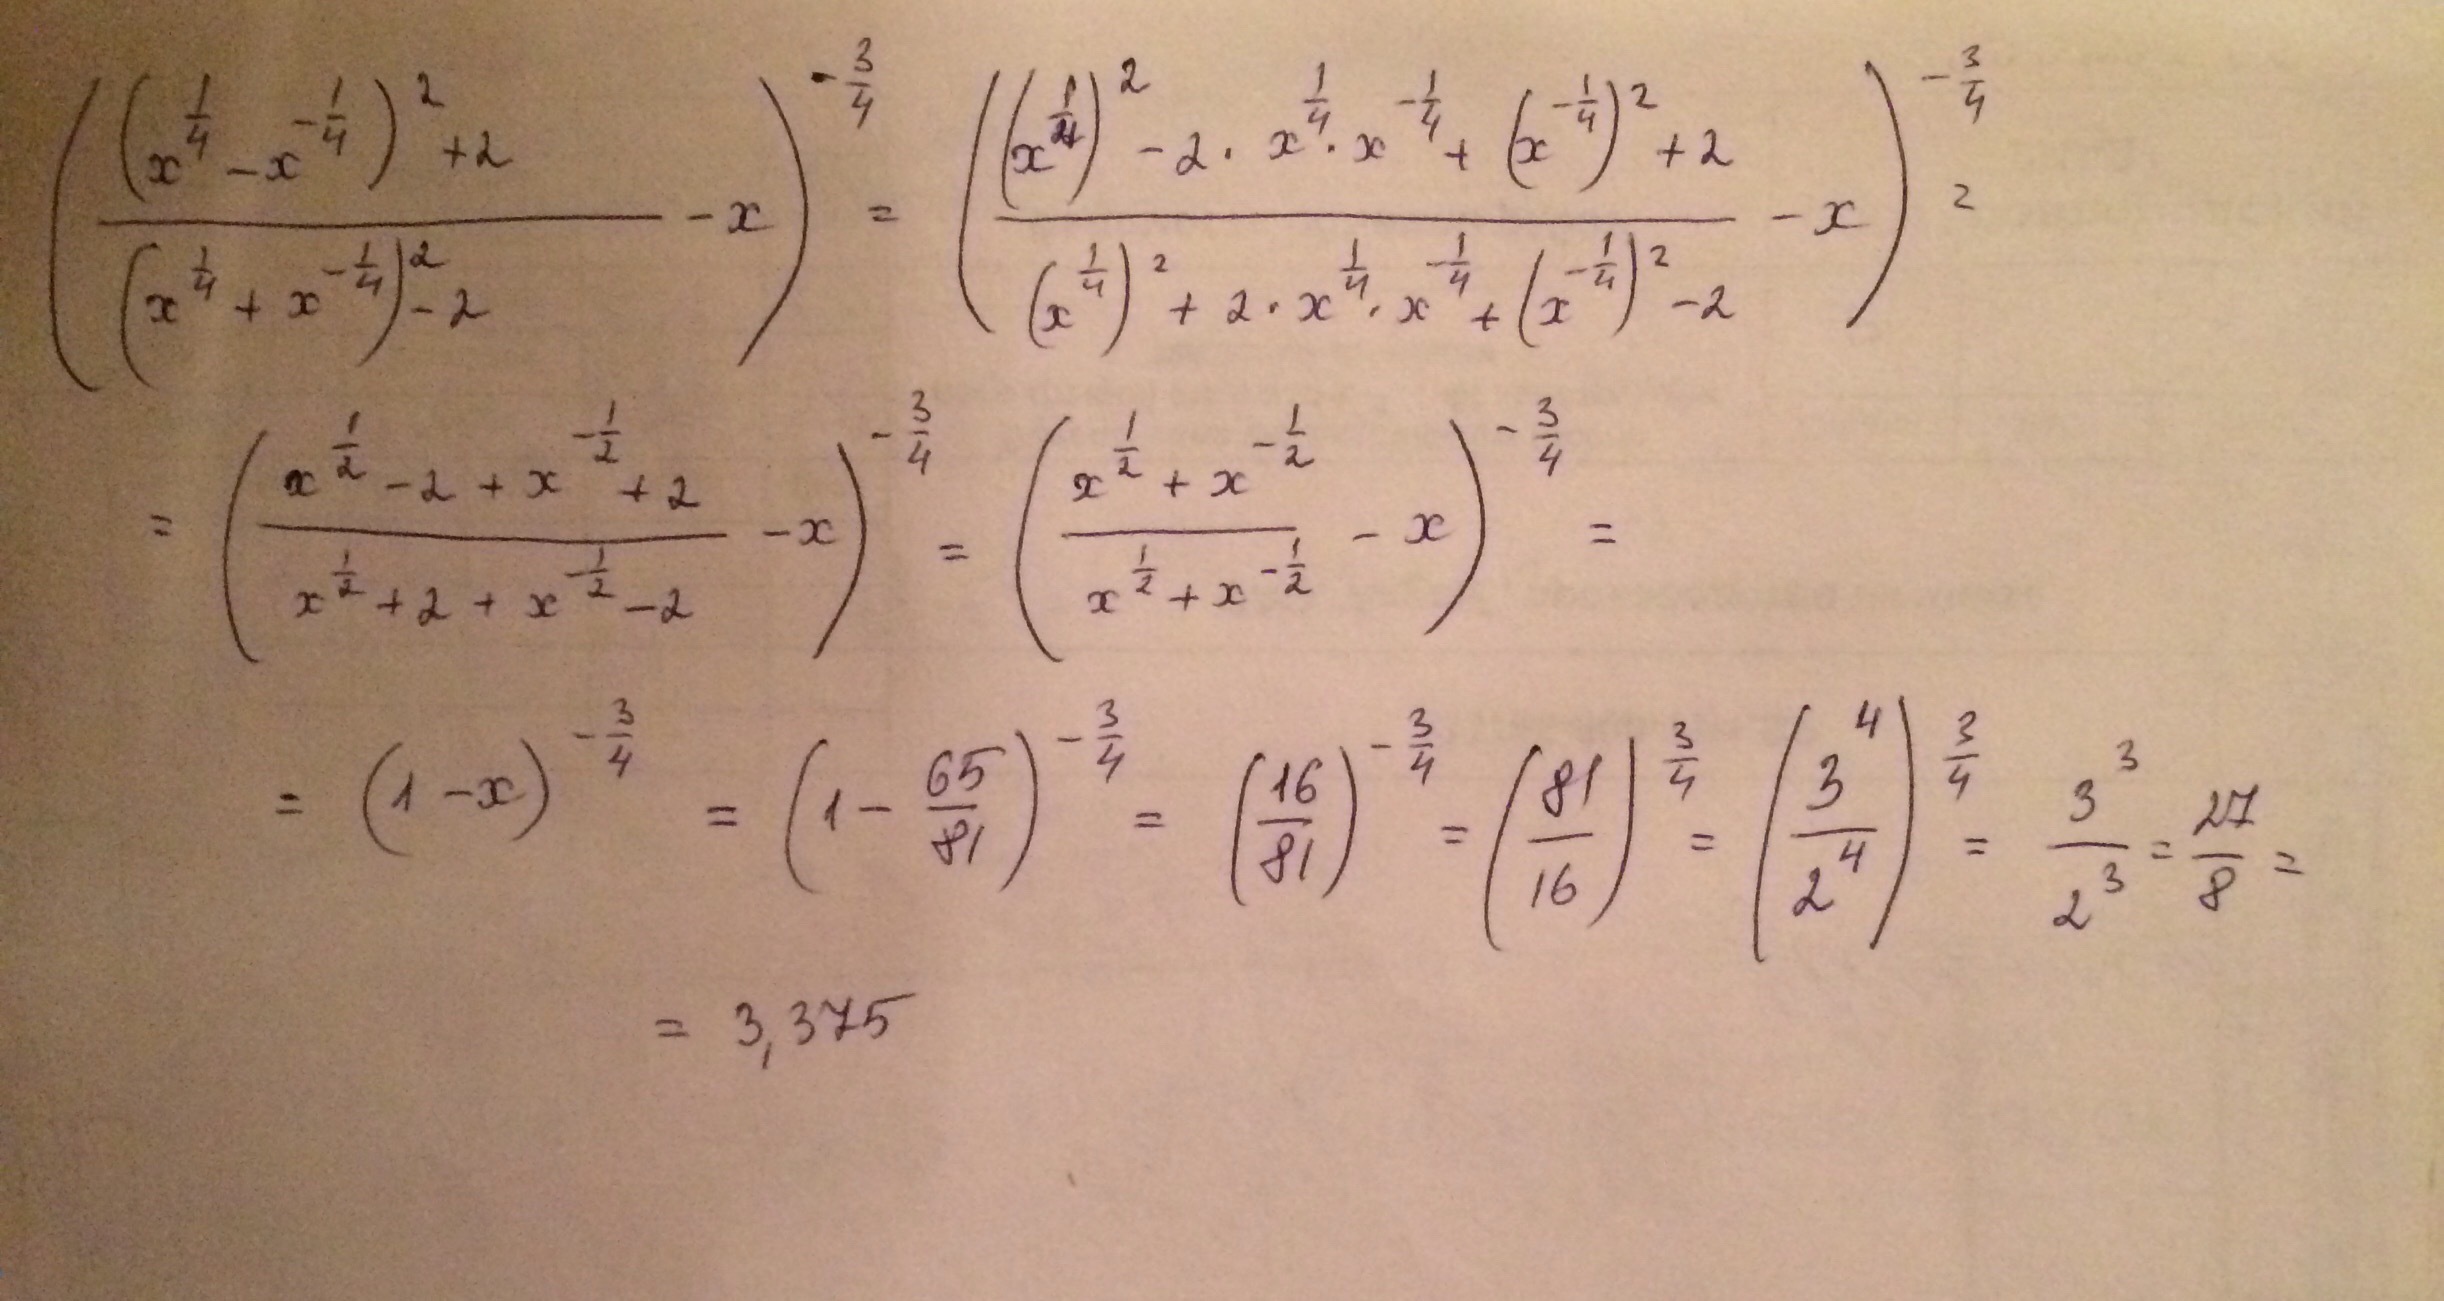 $\left(\frac{\left(x^{\frac{1}{4}}-x^{-\frac{1}{4}}\right)^2+2}{\left(x^{\frac{1}{4}}+x^{-\frac{1}{4}}\right)^2-2}-x\right)^{-\frac{3}{4}}=\left(\frac{\left(x^{\frac{1}{4}}\right)^2-2\cdot x^{\frac{1}{4}}\cdot x^{-\frac{1}{4}}+\left(x^{-\frac{1}{4}}\right)^2+2}{\left(x^{\frac{1}{4}}\right)^2+2\cdot x^{\frac{1}{4}}\cdot x^{-\frac{1}{4}}+\left(x^{-\frac{1}{4}}\right)^2-2}-x\right)^{-\frac{3}{4}}=$
$=\left(\frac{x^{\frac{1}{2}}-2+x^{-\frac{1}{2}}+2}{x^{\frac{1}{2}}+2+x^{-\frac{1}{2}}-2}-x\right)^{-\frac{3}{4}}=\left(\frac{x^{\frac{1}{2}}+x^{-\frac{1}{2}}}{x^{\frac{1}{2}}+x^{-\frac{1}{2}}}-x\right)^{-\frac{3}{4}}=$
$=\left(1-x\right)^{-\frac{3}{4}}=\left(1-\frac{65}{81}\right)^{-\frac{3}{4}}=\left(\frac{16}{81}\right)^{-\frac{3}{4}}=\left(\frac{81}{16}\right)^{\frac{3}{4}}=\left(\frac{3^4}{2^4}\right)^{\frac{3}{4}}=\frac{3^3}{2^3}=\frac{27}{8}=$
$=3,375$